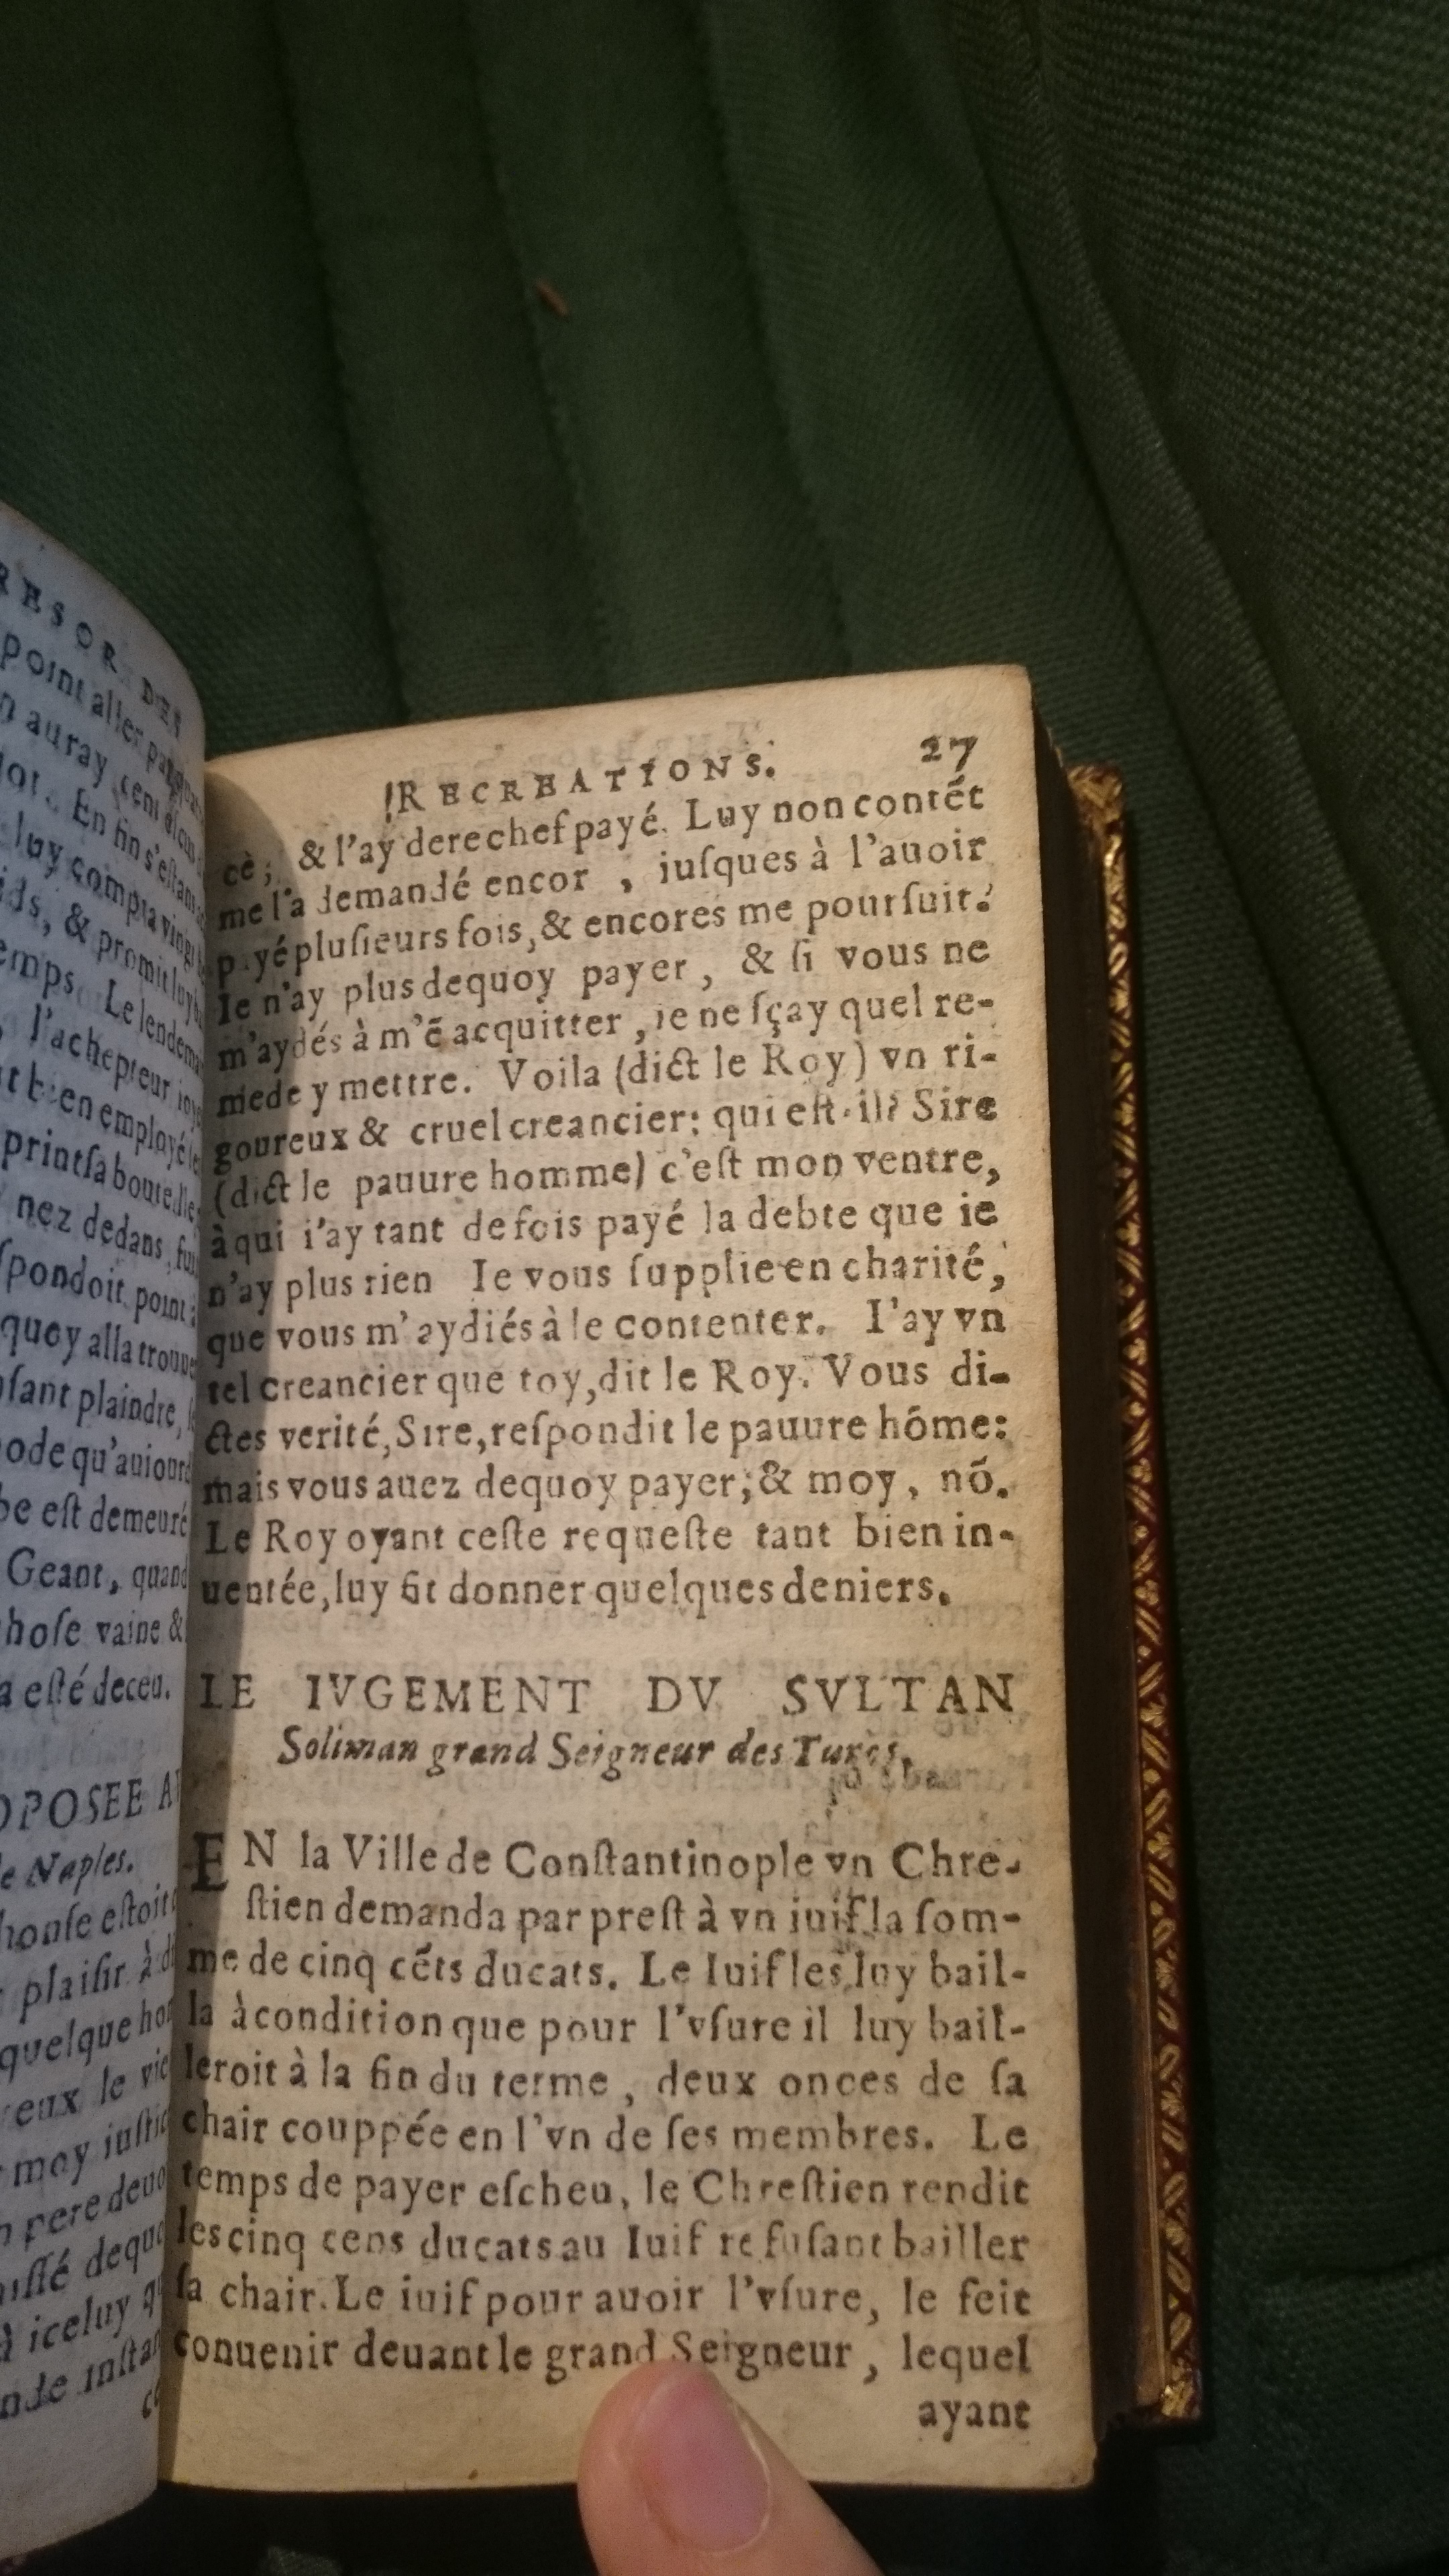 RESOR DES
point aller
n auray cent
ot. En fin s'estant
luy compta vingt
ids, & promit luy
emps. Le lendema
l'achepteur
t bien employé le
print sa bouteille
nez dedans,
spondoit point
quoy alla trouue
sant plaindre,
ode qu'auiourd
be est demeuré
Geant, quand
hose vaine &
a esté deceu.
OPOSEE A
e Naples.
honse estoit
plaisir à
quelque ho
eux le vie
moy iustic
pere deuo
issé dequo
à iceluy q
nde instan
RECREATIONS. 27
cé; & l'ay derechef payé. Luy non contẽt
me l'a demandé encor , iusques à l'auoir
payé plusieurs fois, & encores me poursuit:
Ie n'ay plus dequoy payer , & si vous ne
m'aydés à m'ẽ acquitter , ie ne sçay quel re-
mede y mettre. Voila (dict le Roy) vn ri-
goureux & cruel creancier: qui est-il? Sire
(dict le pauure homme) c'est mon ventre,
à qui i'ay tant de fois payé la debte que ie
n'ay plus rien Ie vous supplie en charité,
que vous m'aydiés à le contenter. I'ay vn
tel creancier que toy, dit le Roy. Vous di-
ctes verité, Sire, respondit le pauure hõme:
mais vous auez dequoy payer; & moy, nõ.
Le Roy oyant ceste requeste tant bien in-
uentée, luy fit donner quelques deniers.
LE IVGEMENT DV SVLTAN
Soliman grand Seigneur des Turcs.
EN la Ville de Constantinople vn Chre-
stien demanda par prest à vn iuif la som-
me de cinq cẽts ducats. Le Iuif les luy bail-
la à condition que pour l'vsure il luy bail-
leroit à la fin du terme , deux onces de sa
chair couppée en l'vn de ses membres. Le
temps de payer escheu, le Chrestien rendit
les cinq cens ducats au Iuif refusant bailler
sa chair. Le iuif pour auoir l'vsure, le feit
conuenir deuant le grand Seigneur , lequel
ayant